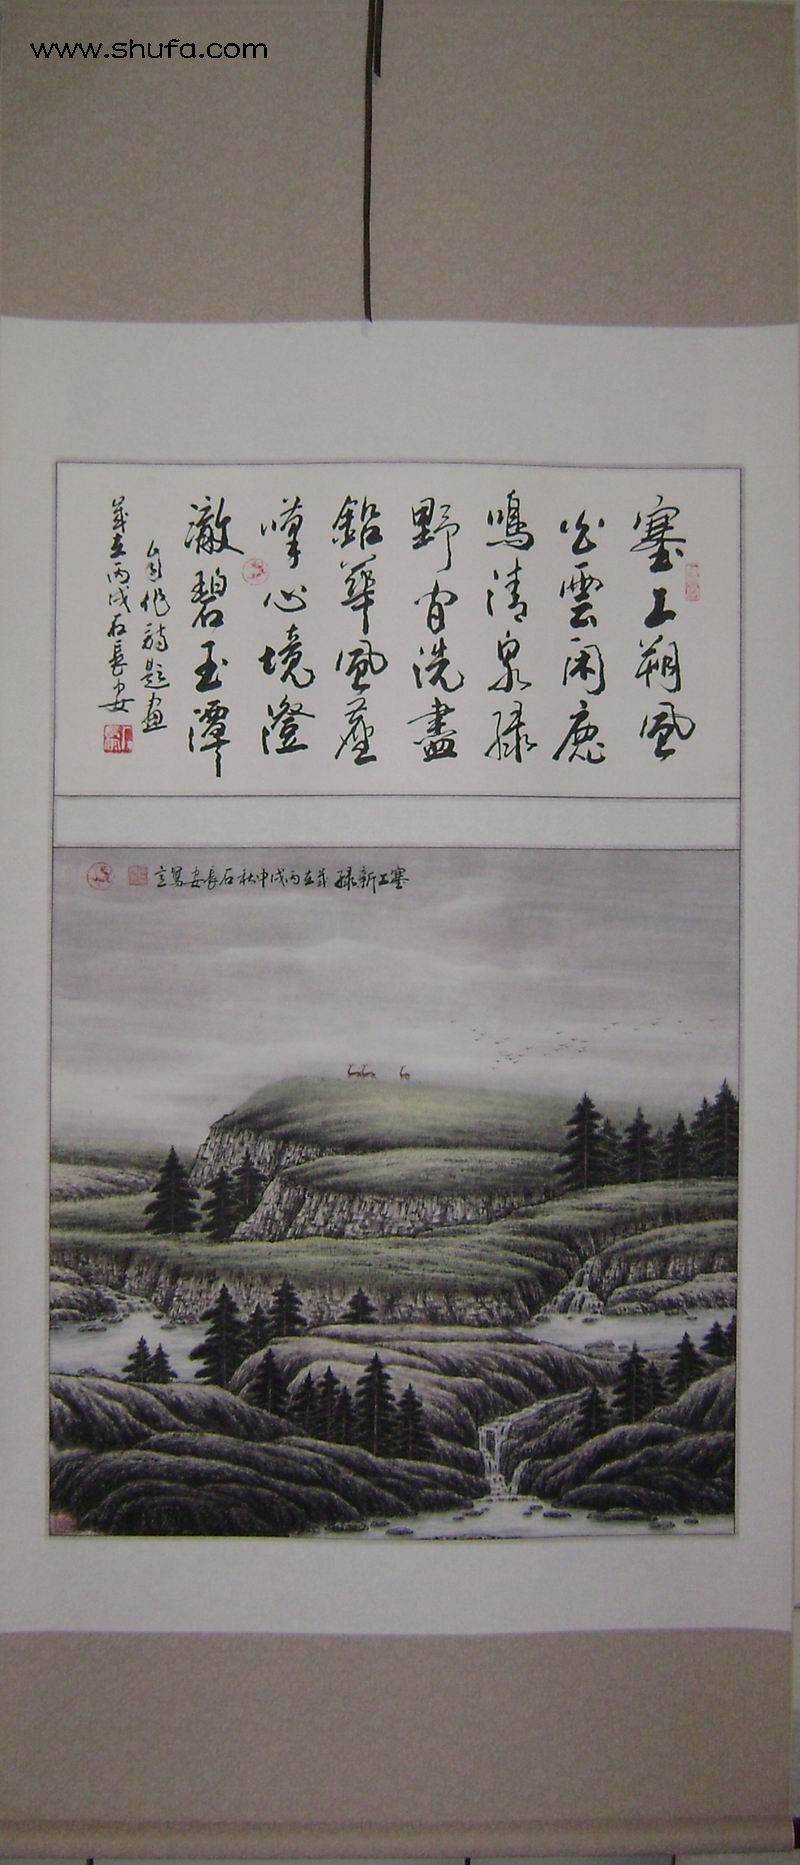 www.shufa.com
塞上朔風
白雲閑鹿
鳴清泉緑
野間洗盡
鉛華風塵
嘆心境澄
澈碧玉潭
自作詩題畫
歲在丙戌石長安
塞上新緑歲在丙戌中秋石長安寫意